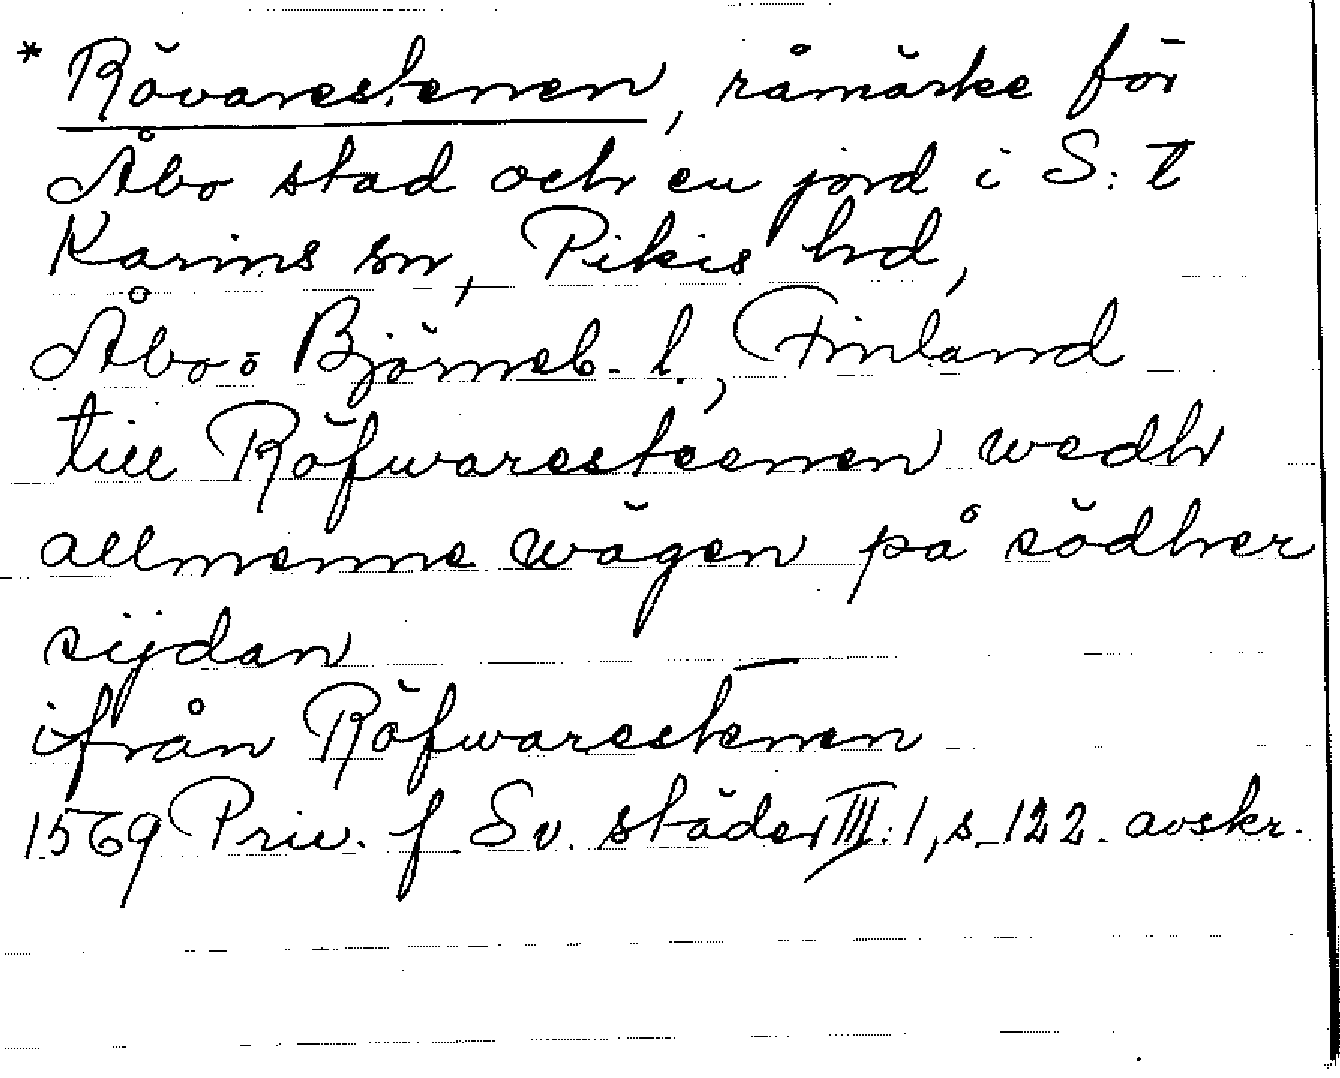 * Rövarestenen, råmärke för
Åbo stad och en jord i S:t
Karins sn, Pikis hd,
Åbo o Björneb. l., Finland
till Röfwaresteenen wedh
allmenne wägen på södher
sijdan
ifrån Röfwarestenen
1569 Priv. f Sv. städer III:1, s. 122. avskr.